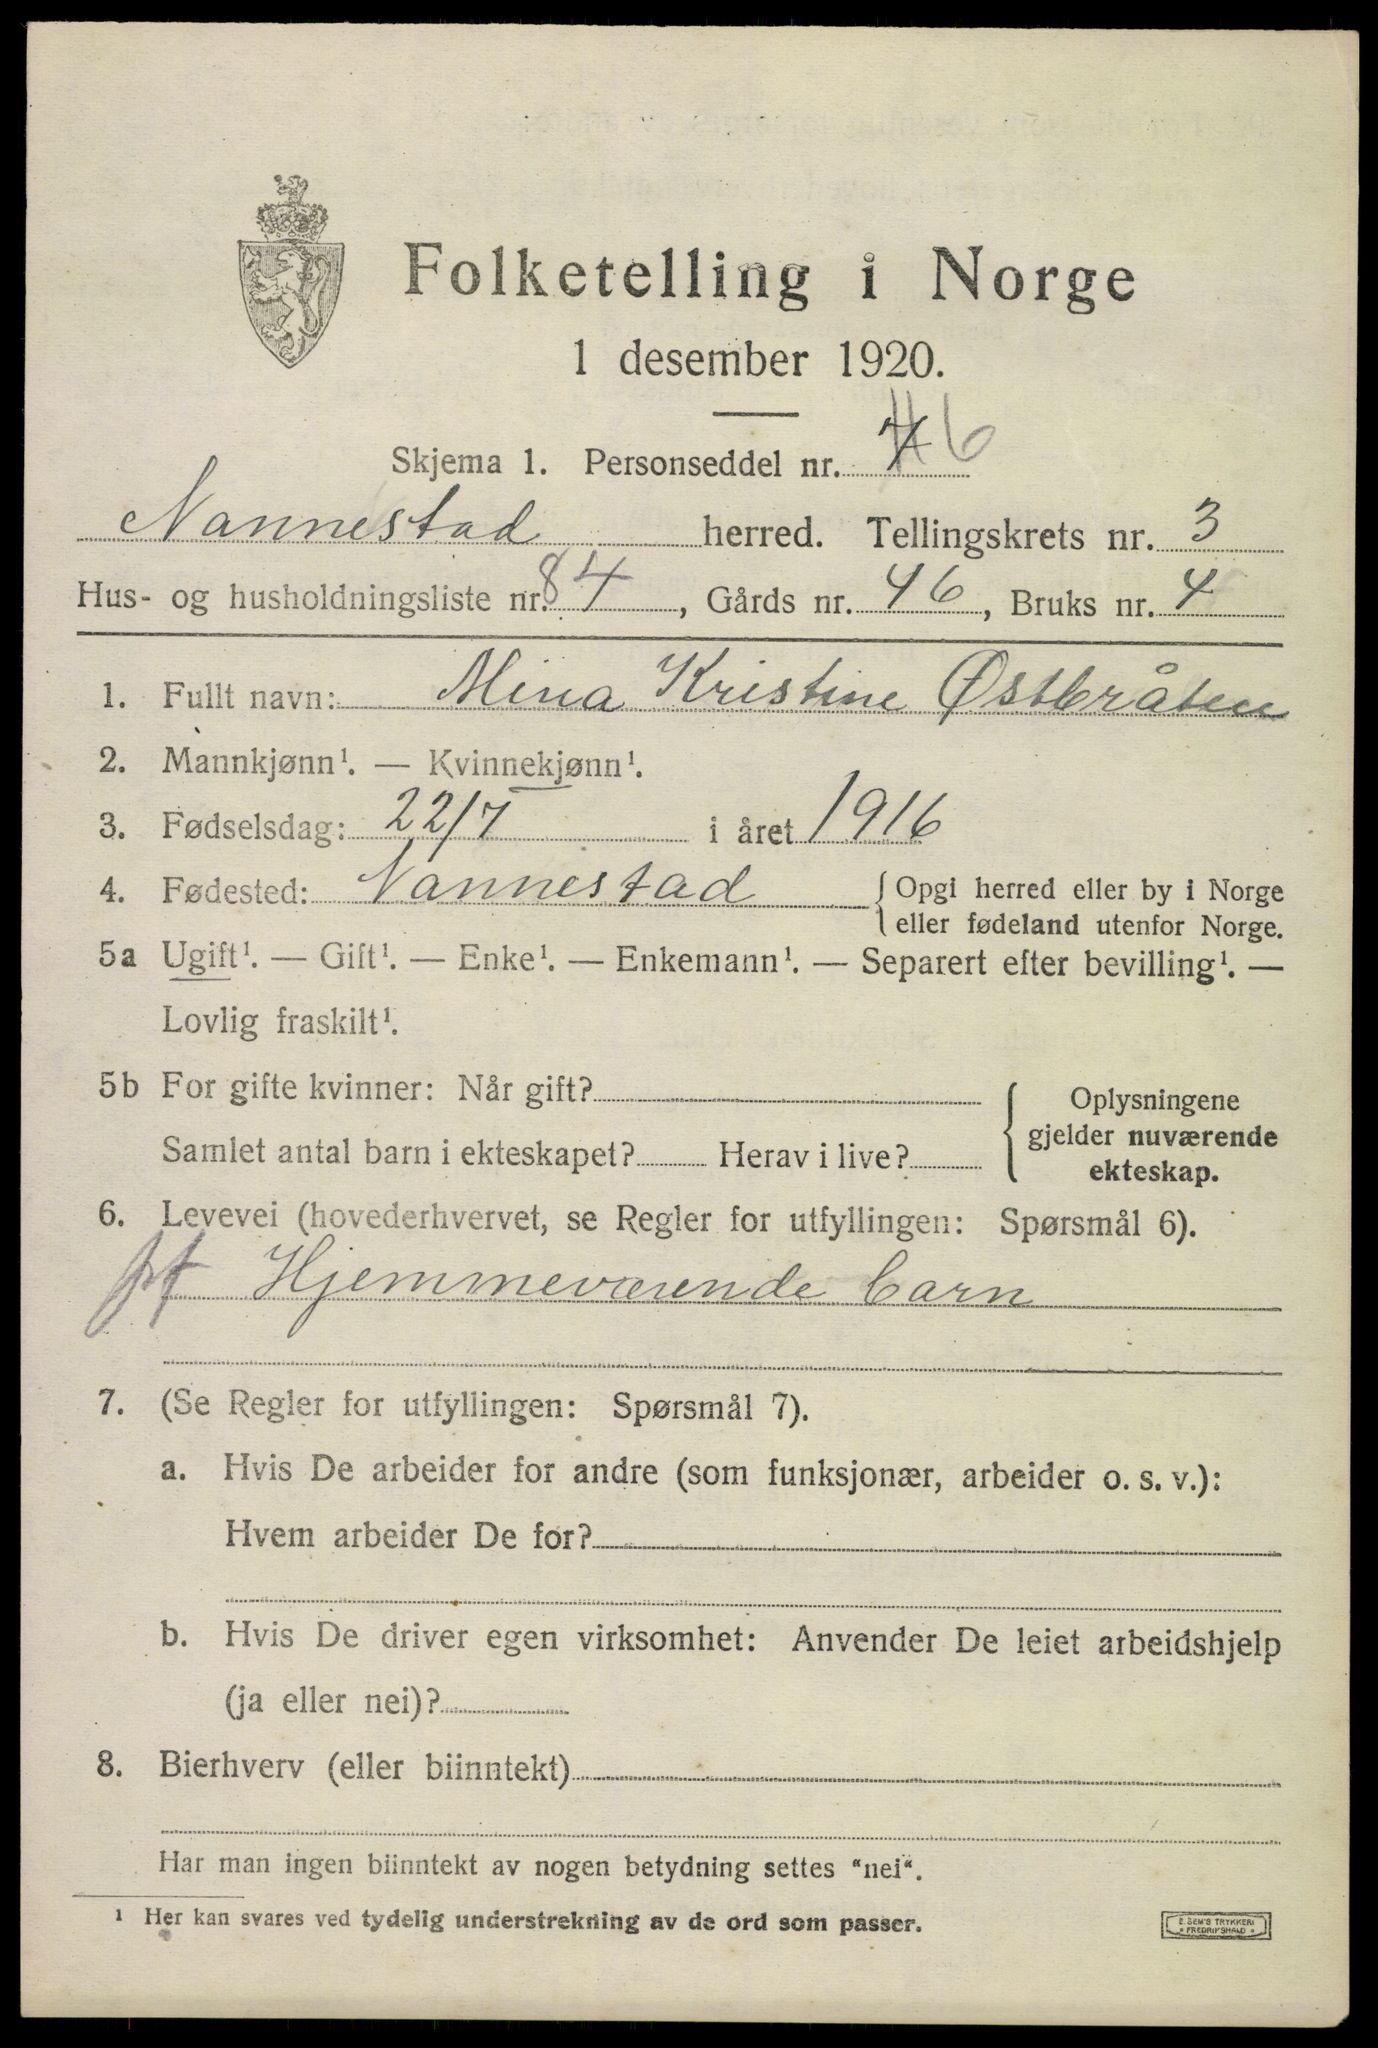 Folketelling i Norge
1 desember 1920.
Skjema 1. Personseddel nr. 6
Nannestad herred. Tellingskrets nr. 3
Hus- og husholdningsliste nr. 84, Gårds nr. 46, Bruks nr. 4
1. Fullt navn: Mina Kristine Østbråten
2. Mannkjønn¹. — Kvinnekjønn¹.
3. Fødselsdag: 22/7 i året 1916
4. Fødested: Nannestad { Opgi herred eller by i Norge
eller fødeland utenfor Norge.
5a Ugift¹. — Gift¹. — Enke¹. — Enkemann¹. — Separert efter bevilling¹. —
Lovlig fraskilt¹.
5b For gifte kvinner: Når gift? { Oplysningene
gjelder nuværende
Samlet antal barn i ekteskapet? Herav i live?
ekteskap.
6. Levevei (hovederhvervet, se Regler for utfyllingen: Spørsmål 6).
Hjemmeværende barn
7. (Se Regler for utfyllingen: Spørsmål 7).
a. Hvis De arbeider for andre (som funksjonær, arbeider o. s. v.):
Hvem arbeider De for?
b. Hvis De driver egen virksomhet: Anvender De leiet arbeidshjelp
(ja eller nei)?
8. Bierhverv (eller biinntekt)
Har man ingen biinntekt av nogen betydning settes "nei".
¹ Her kan svares ved tydelig understrekning av de ord som passer.
E. SEM'S TRYKKERI
FREDRIKSHALD